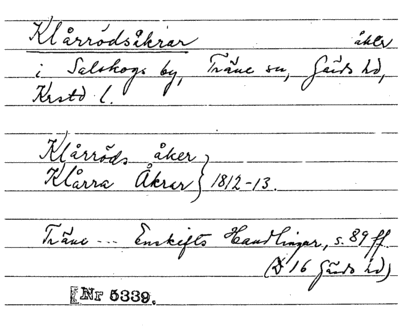 Klårrödsåkrar åker
i Salskogs by, Träne sn, Gärds hd,
Krstd l.
Klårröds åker
Klårra Åkrar } 1812-13.
Träne ... Enskifts Handlingar, s. 89 ff.
(D 16 Gärds hd)
[Nr 5339.